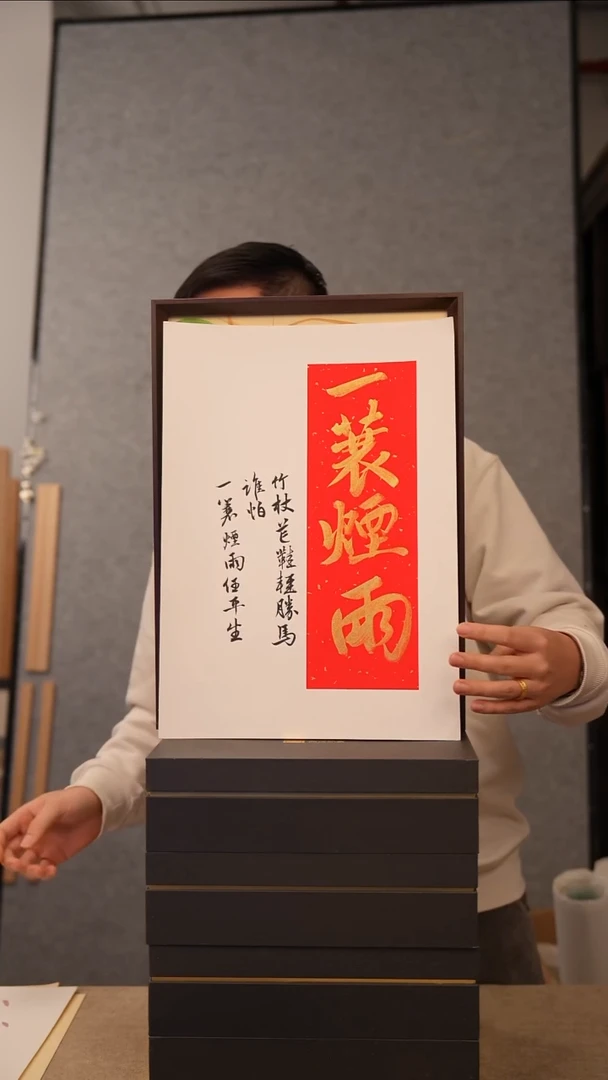 一蓑煙雨
竹杖芒鞵輕勝馬
誰怕
一蓑煙雨任平生